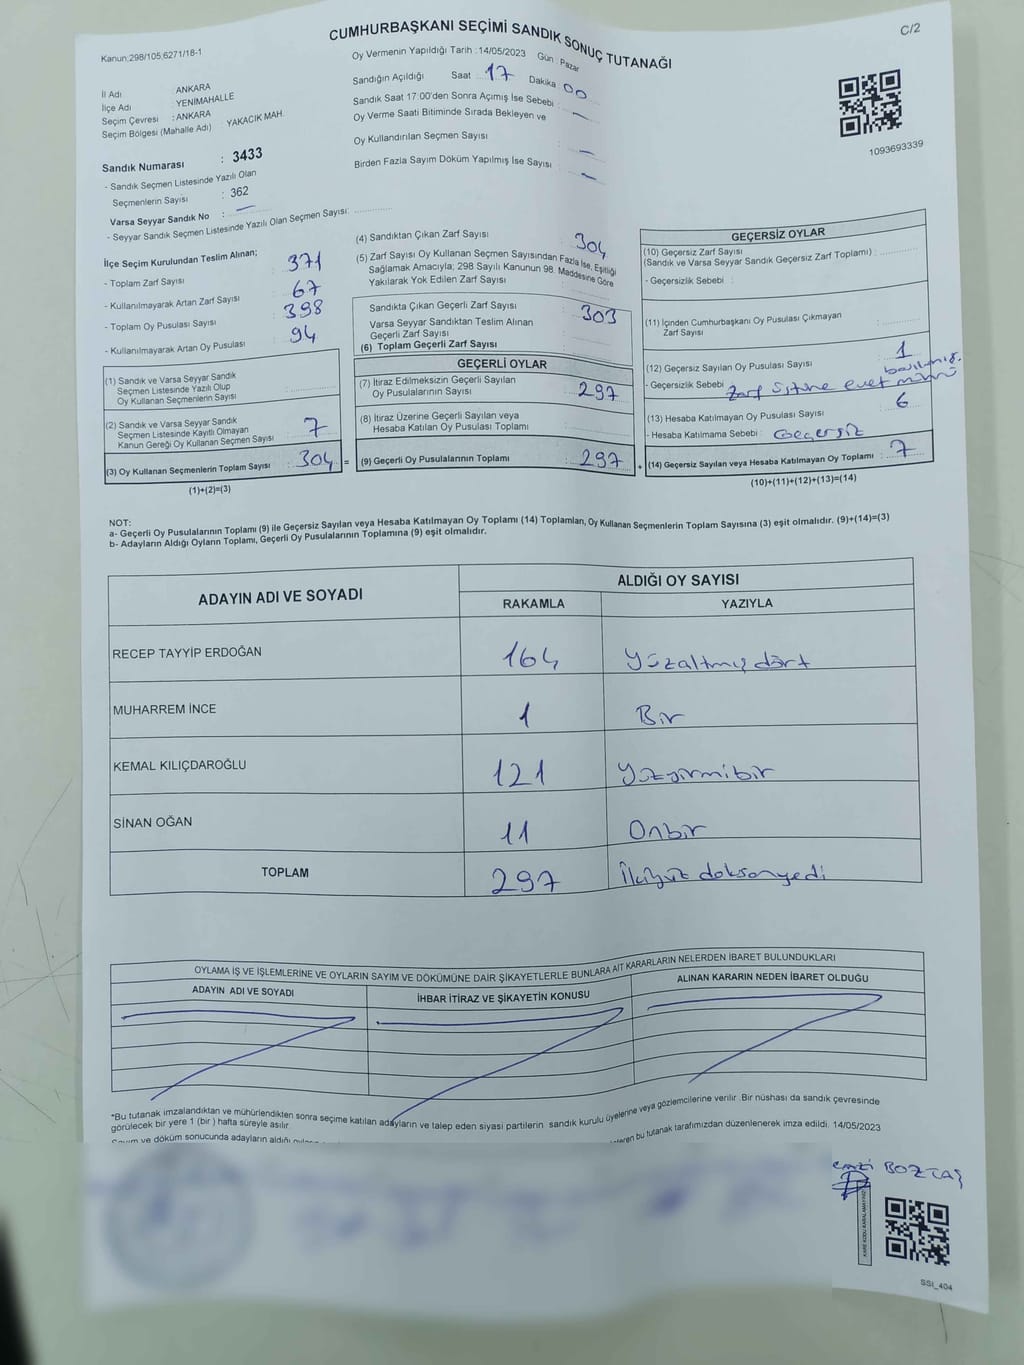 CUMHURBAŞKANI SEÇİMİ SANDIK SONUÇ TUTANAĞI
C/2
Kanun;298/105,6271/18-1
Oy Vermenin Yapıldığı Tarih :14/05/2023 Gün : Pazar
Sandığın Açıldığı Saat 17 Dakika 00
Sandık Saat 17:00'den Sonra Açımış İse Sebebi :
Oy Verme Saati Bitiminde Sırada Bekleyen ve
Oy Kullandırılan Seçmen Sayısı
Birden Fazla Sayım Döküm Yapılmış İse Sayısı
1093693339
İl Adı : ANKARA
İlçe Adı : YENİMAHALLE
Seçim Çevresi : ANKARA
Seçim Bölgesi (Mahalle Adı) YAKACIK MAH.
Sandık Numarası : 3433
- Sandık Seçmen Listesinde Yazılı Olan
Seçmenlerin Sayısı : 362
Varsa Seyyar Sandık No :
- Seyyar Sandık Seçmen Listesinde Yazılı Olan Seçmen Sayısı:
İlçe Seçim Kurulundan Teslim Alınan;
- Toplam Zarf Sayısı 371
- Kullanılmayarak Artan Zarf Sayısı 67
- Toplam Oy Pusulası Sayısı 398
- Kullanılmayarak Artan Oy Pusulası 94
(1) Sandık ve Varsa Seyyar Sandık
Seçmen Listesinde Yazılı Olup
Oy Kullanan Seçmenlerin Sayısı
(2) Sandık ve Varsa Seyyar Sandık
Seçmen Listesinde Kayıtlı Olmayan
Kanun Gereği Oy Kullanan Seçmen Sayısı 7
(3) Oy Kullanan Seçmenlerin Toplam Sayısı 304 =
(1)+(2)=(3)
(4) Sandıktan Çıkan Zarf Sayısı 304
(5) Zarf Sayısı Oy Kullanan Seçmen Sayısından Fazla İse, Eşitliği
Sağlamak Amacıyla; 298 Sayılı Kanunun 98. Maddesine Göre
Yakılarak Yok Edilen Zarf Sayısı
Sandıkta Çıkan Geçerli Zarf Sayısı 303
Varsa Seyyar Sandıktan Teslim Alınan
Geçerli Zarf Sayısı
(6) Toplam Geçerli Zarf Sayısı
GEÇERLİ OYLAR
(7) İtiraz Edilmeksizin Geçerli Sayılan
Oy Pusulalarının Sayısı 297
(8) İtiraz Üzerine Geçerli Sayılan veya
Hesaba Katılan Oy Pusulası Toplamı
(9) Geçerli Oy Pusulalarının Toplamı 297 +
GEÇERSİZ OYLAR
(10) Geçersiz Zarf Sayısı
(Sandık ve Varsa Seyyar Sandık Geçersiz Zarf Toplamı) :
- Geçersizlik Sebebi :
(11) İçinden Cumhurbaşkanı Oy Pusulası Çıkmayan
Zarf Sayısı
(12) Geçersiz Sayılan Oy Pusulası Sayısı 1
- Geçersizlik Sebebi Zarf üstüne evet mührü basılmış.
(13) Hesaba Katılmayan Oy Pusulası Sayısı 6
- Hesaba Katılmama Sebebi : Geçersiz
(14) Geçersiz Sayılan veya Hesaba Katılmayan Oy Toplamı : 7
(10)+(11)+(12)+(13)=(14)
NOT:
a- Geçerli Oy Pusulalarının Toplamı (9) ile Geçersiz Sayılan veya Hesaba Katılmayan Oy Toplamı (14) Toplamları, Oy Kullanan Seçmenlerin Toplam Sayısına (3) eşit olmalıdır. (9)+(14)=(3)
b- Adayların Aldığı Oyların Toplamı, Geçerli Oy Pusulalarının Toplamına (9) eşit olmalıdır.
ADAYIN ADI VE SOYADI
ALDIĞI OY SAYISI
RAKAMLA YAZIYLA
RECEP TAYYİP ERDOĞAN 164 Yüzaltmış dört
MUHARREM İNCE 1 Bir
KEMAL KILIÇDAROĞLU 121 Yüzyirmibir
SİNAN OĞAN 11 Onbir
TOPLAM 297 İkiyüz doksanyedi
OYLAMA İŞ VE İŞLEMLERİNE VE OYLARIN SAYIM VE DÖKÜMÜNE DAİR ŞİKAYETLERLE BUNLARA AİT KARARLARIN NELERDEN İBARET BULUNDUKLARI
ADAYIN ADI VE SOYADI
İHBAR İTİRAZ VE ŞİKAYETİN KONUSU
ALINAN KARARIN NEDEN İBARET OLDUĞU
*Bu tutanak imzalandıktan ve mühürlendikten sonra seçime katılan adayların ve talep eden siyasi partilerin sandık kurulu üyelerine veya gözlemcilerine verilir. Bir nüshası da sandık çevresinde
görülecek bir yere 1 (bir) hafta süreyle asılır.
Sayım ve döküm sonucunda adayların aldığı
bu tutanak tarafımızdan düzenlenerek imza edildi. 14/05/2023
BOZTAŞ
KARE KODU KARALAMAYINIZ
SSI_404